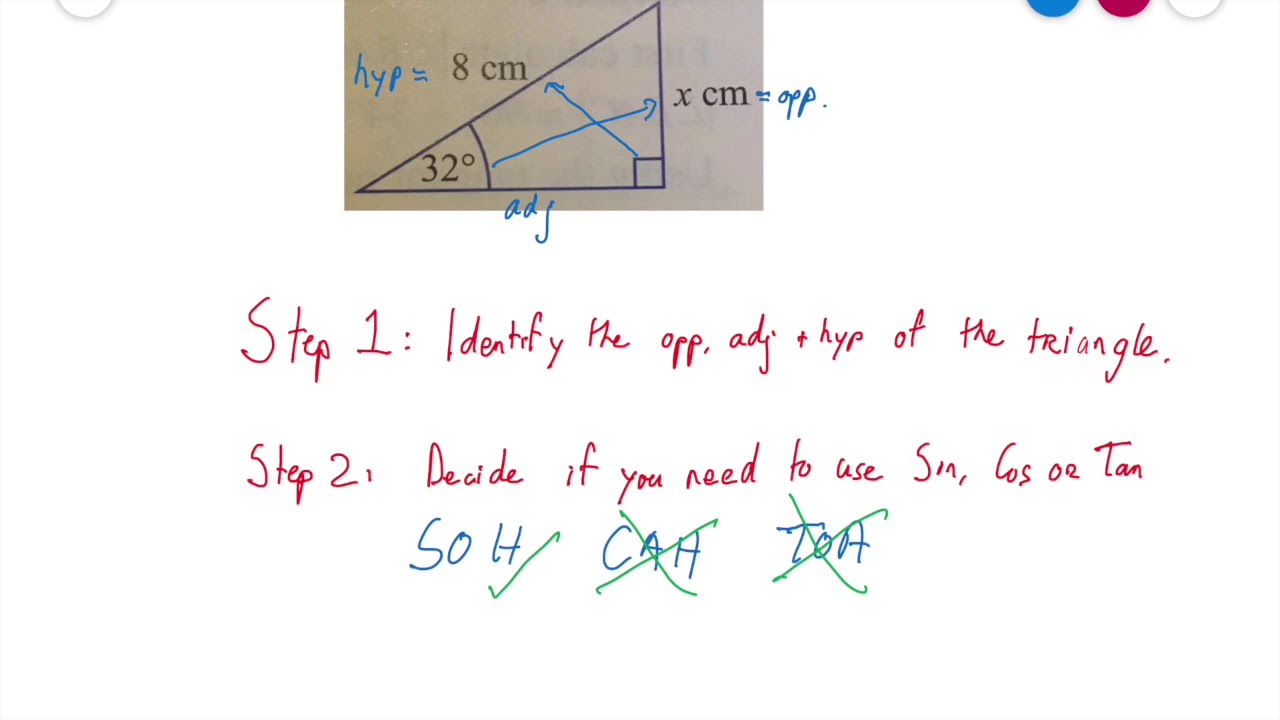 hyp = 8 cm
x cm = opp.
32°
adj
Step 1: Identify the opp, adj + hyp of the triangle.
Step 2: Decide if you need to use Sin, Cos or Tan
SOH CAH TOA